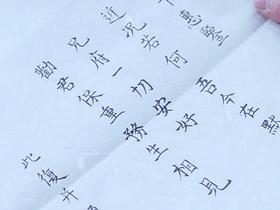 惠鑒
近況若何吾今在
兄府一切安好
勸君保重務生相見
此復并